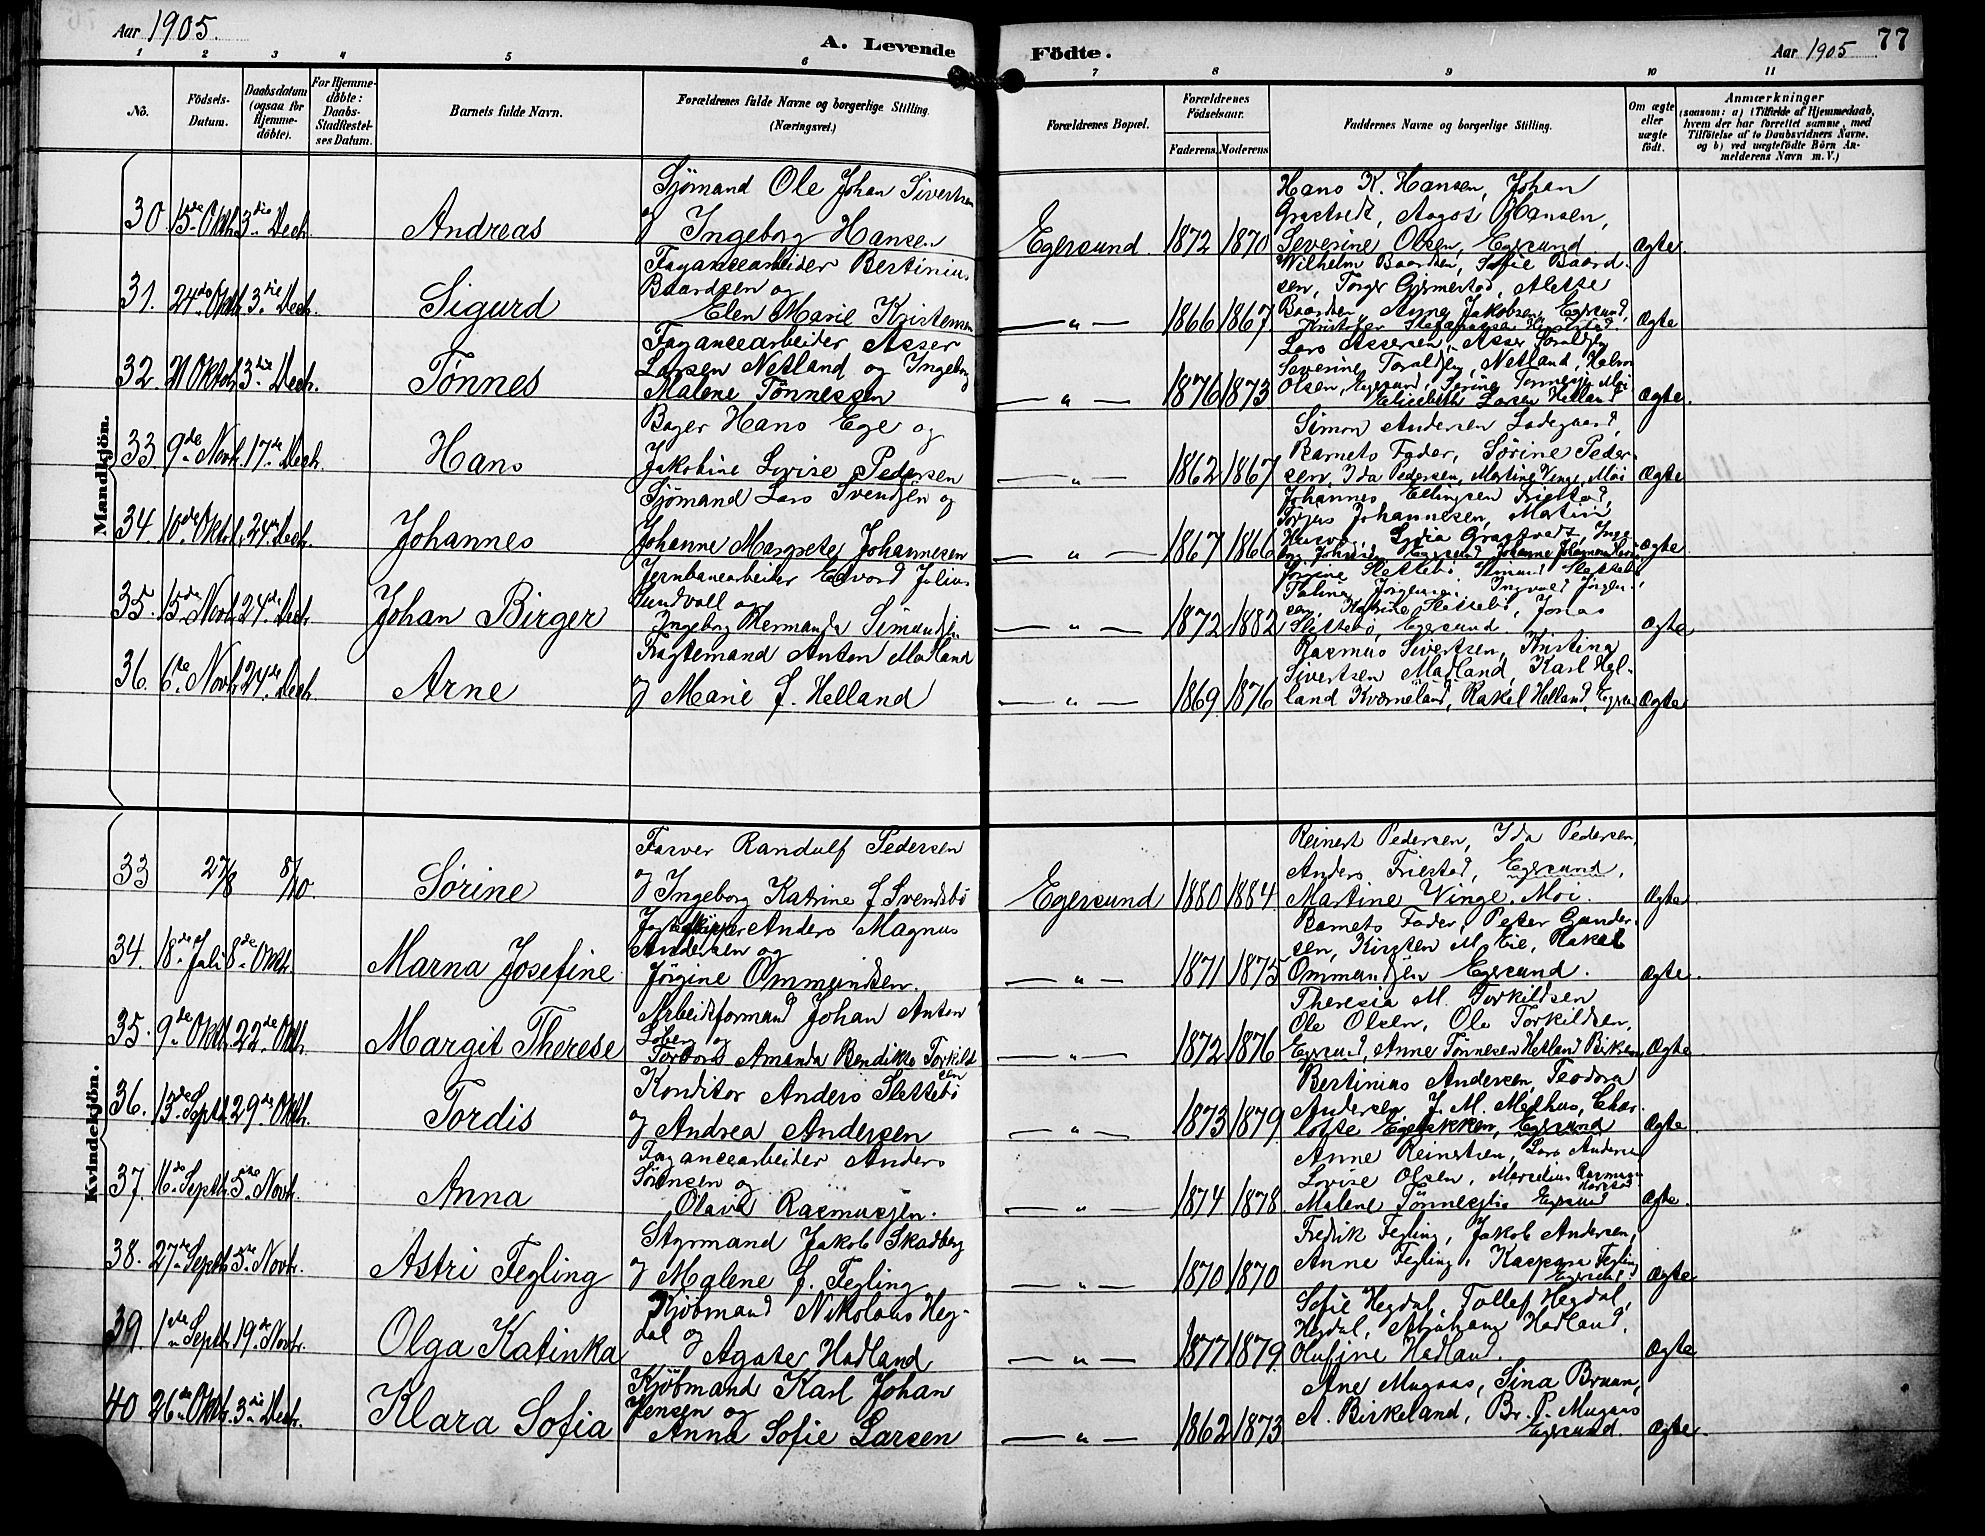 Aar 1905.
A. Levende
Födte.
Aar 1905
77
1 2 3 4 5 6 7 8 9 10 11
No.
Födsels-
Datum.
Daabsdatum
(ogsaa for
Hjemme-
döbte).
For Hjemme-
döbte:
Daabs-
Stadfæstel-
ses Datum.
Barnets fulde Navn.
Forældrenes fulde Navne og borgerlige Stilling.
(Næringsvei.)
Forældrenes Bopæl.
Forældrenes
Födselsaar.
Faderens. Moderens.
Faddernes Navne og borgerlige Stilling.
Om ægte
eller
uægte
födt.
Anmærkninger
(saasom: a) i Tilfælde af Hjemmedaab,
hvem der har forrettet samme, med
Tilföielse af to Daabsvidners Navne.
og b) ved uægtefödte Börn An-
melderens Navn m. V.)
Mandkjön.
30 15de Oktb. 3die Decb. Andreas
Sjömand Ole Johan Sivertsen
og Ingeborg Hansen
Egersund. 1872 1870
Hans K. Hansen, Johan
Hansen,
Severine Olsen, Egersund.
Ægte.
31. 24de Oktb. 3die Decb. Sigurd
Fayancearbeider Bertinius
Baardsen og
Elen Marie Kristensen
— " — 1866 1867
Wilhelm Baardsen, Sofie Baard-
sen, Torger Gjermestad,
Baardsen, Anne Jakobsen, Egersund,
Kristofer
Ægte
32. 21 Oktob. 3die Decb. Tönnes
Fayancearbeider Asser
Larsen Netland og Ingeborg
Malene Tönnessen
— " — 1876 1873
Lars Assersen, Asser
Severine Netland,
Olsen, Egersund, Serine Tönnesen Moi
Elisabeth Larsen Helland
Ægte.
33 9de Novb. 17de Decb. Hans
Bager Hans Ege og
Jakobine Lovise Pedersen
— " — 1862 1867
Simon Andersen Ladegaard,
Barnets Fader, Sörine Peder-
sen, Ida Pedersen, Martine Vinge, Moi
Ægte
34. 10de Oktob. 24de Decb. Johannes
Sjömand Lars Svendsen og
Johanne Margrete Johannesen
— " — 1867 1866
Johannes Ellingsen Friestad,
Torjus Johannesen, Martin
Lydia
Egersund
Ægte
35. 15de Novb. 24de Decb. Johan Birger
Jernbanearbeider Edvard Julius
Sundvall og
Ingeborg Hermanda Simonsen
— " — 1872 1882
Slettebö, Slettebö
Paline Jörgensen, Ingvald Jörgen-
sen, Katrine Slettebö, Jonas
Slettebö, Egersund.
Ægte
36. 6te Novb. 24de Decb. Arne
Fragtemand Anton Madland
og Marie f. Helland
— " — 1869 1876
Rasmus Sivertsen, Kristine
Sivertsen Madland, Karl Hel-
land Kverneland, Rakel Helland, Egersund
Ægte
Kvindekjön.
33 27/8 8/10. Sörine
Farver Randulf Pedersen
og Ingeborg Katrine f. Svendsbö
Egersund 1880 1884.
Reinert Pedersen, Ida Pedersen,
Anders Friestad, Egersund,
Martine Vinge, Moi.
Ægte
34. 18de Juli 8de Oktb. Marna Josefine
Anders Magnus
Andersen og
Jörgine Ommundsen.
— " — 1871 1875
Barnets Fader, Peter Gunder-
sen, Kirsten M. Eie, Rakel
Ommundsen Egersund.
Ægte.
35. 9de Oktb. 22de Oktb. Margit Therese
Arbeidsformand Johan Anton
og
Amanda Bendikke Torkild-
sen
— " — 1872 1876
Theresia M. Torkildsen
Ole Olsen, Ole Torkildsen,
Egersund, Anne Tönnesen Hetland
Ægte
36. 15de Septb. 29de Oktb. Tordis
Konditor Anders Slettebö
og Andrea Andersen
— " — 1873 1879
Bertinius Andersen, Teodora
Andersen, J. M. Melhus, Char-
lotte Egebakken, Egersund
Ægte
37. 16de Septb. 5te Novb. Anna
Fayancearbeider Anders
Sörensen og
Olava Rasmussen.
— " — 1874 1878.
Anne Reinertsen, Lars Andersen
Lovise Olsen, Marselius Rasmussen
Malene Egersund
Ægte.
38. 27de Septb. 5te Novb. Astri Fegling
Styrmand Jakob Skadberg
og Malene f. Fegling
— " — 1870 1870
Fredrik Fegling, Jakob Andersen,
Anne Fegling, Kaspara Fegling
Egersund
Ægte
39. 1ste Septb. 19de Novb. Olga Katinka
Kjöbmand Nikolaus Heg-
dal og
Agate Hadland
— " — 1877 1879.
Sofie Hegdal, Tollef Hegdal,
Hegdal, Abraham Hadland,
Olufine Hadland.
Ægte
40 26de Oktb. 3die Decb. Klara Sofia
Kjöbmand Karl Johan
Jensen og
Anna Sofie Larsen
— " — 1862 1873
Ane Mugaas, Sina Bruun,
A. Birkeland, Br. P. Mugaas
Egersund.
Ægte